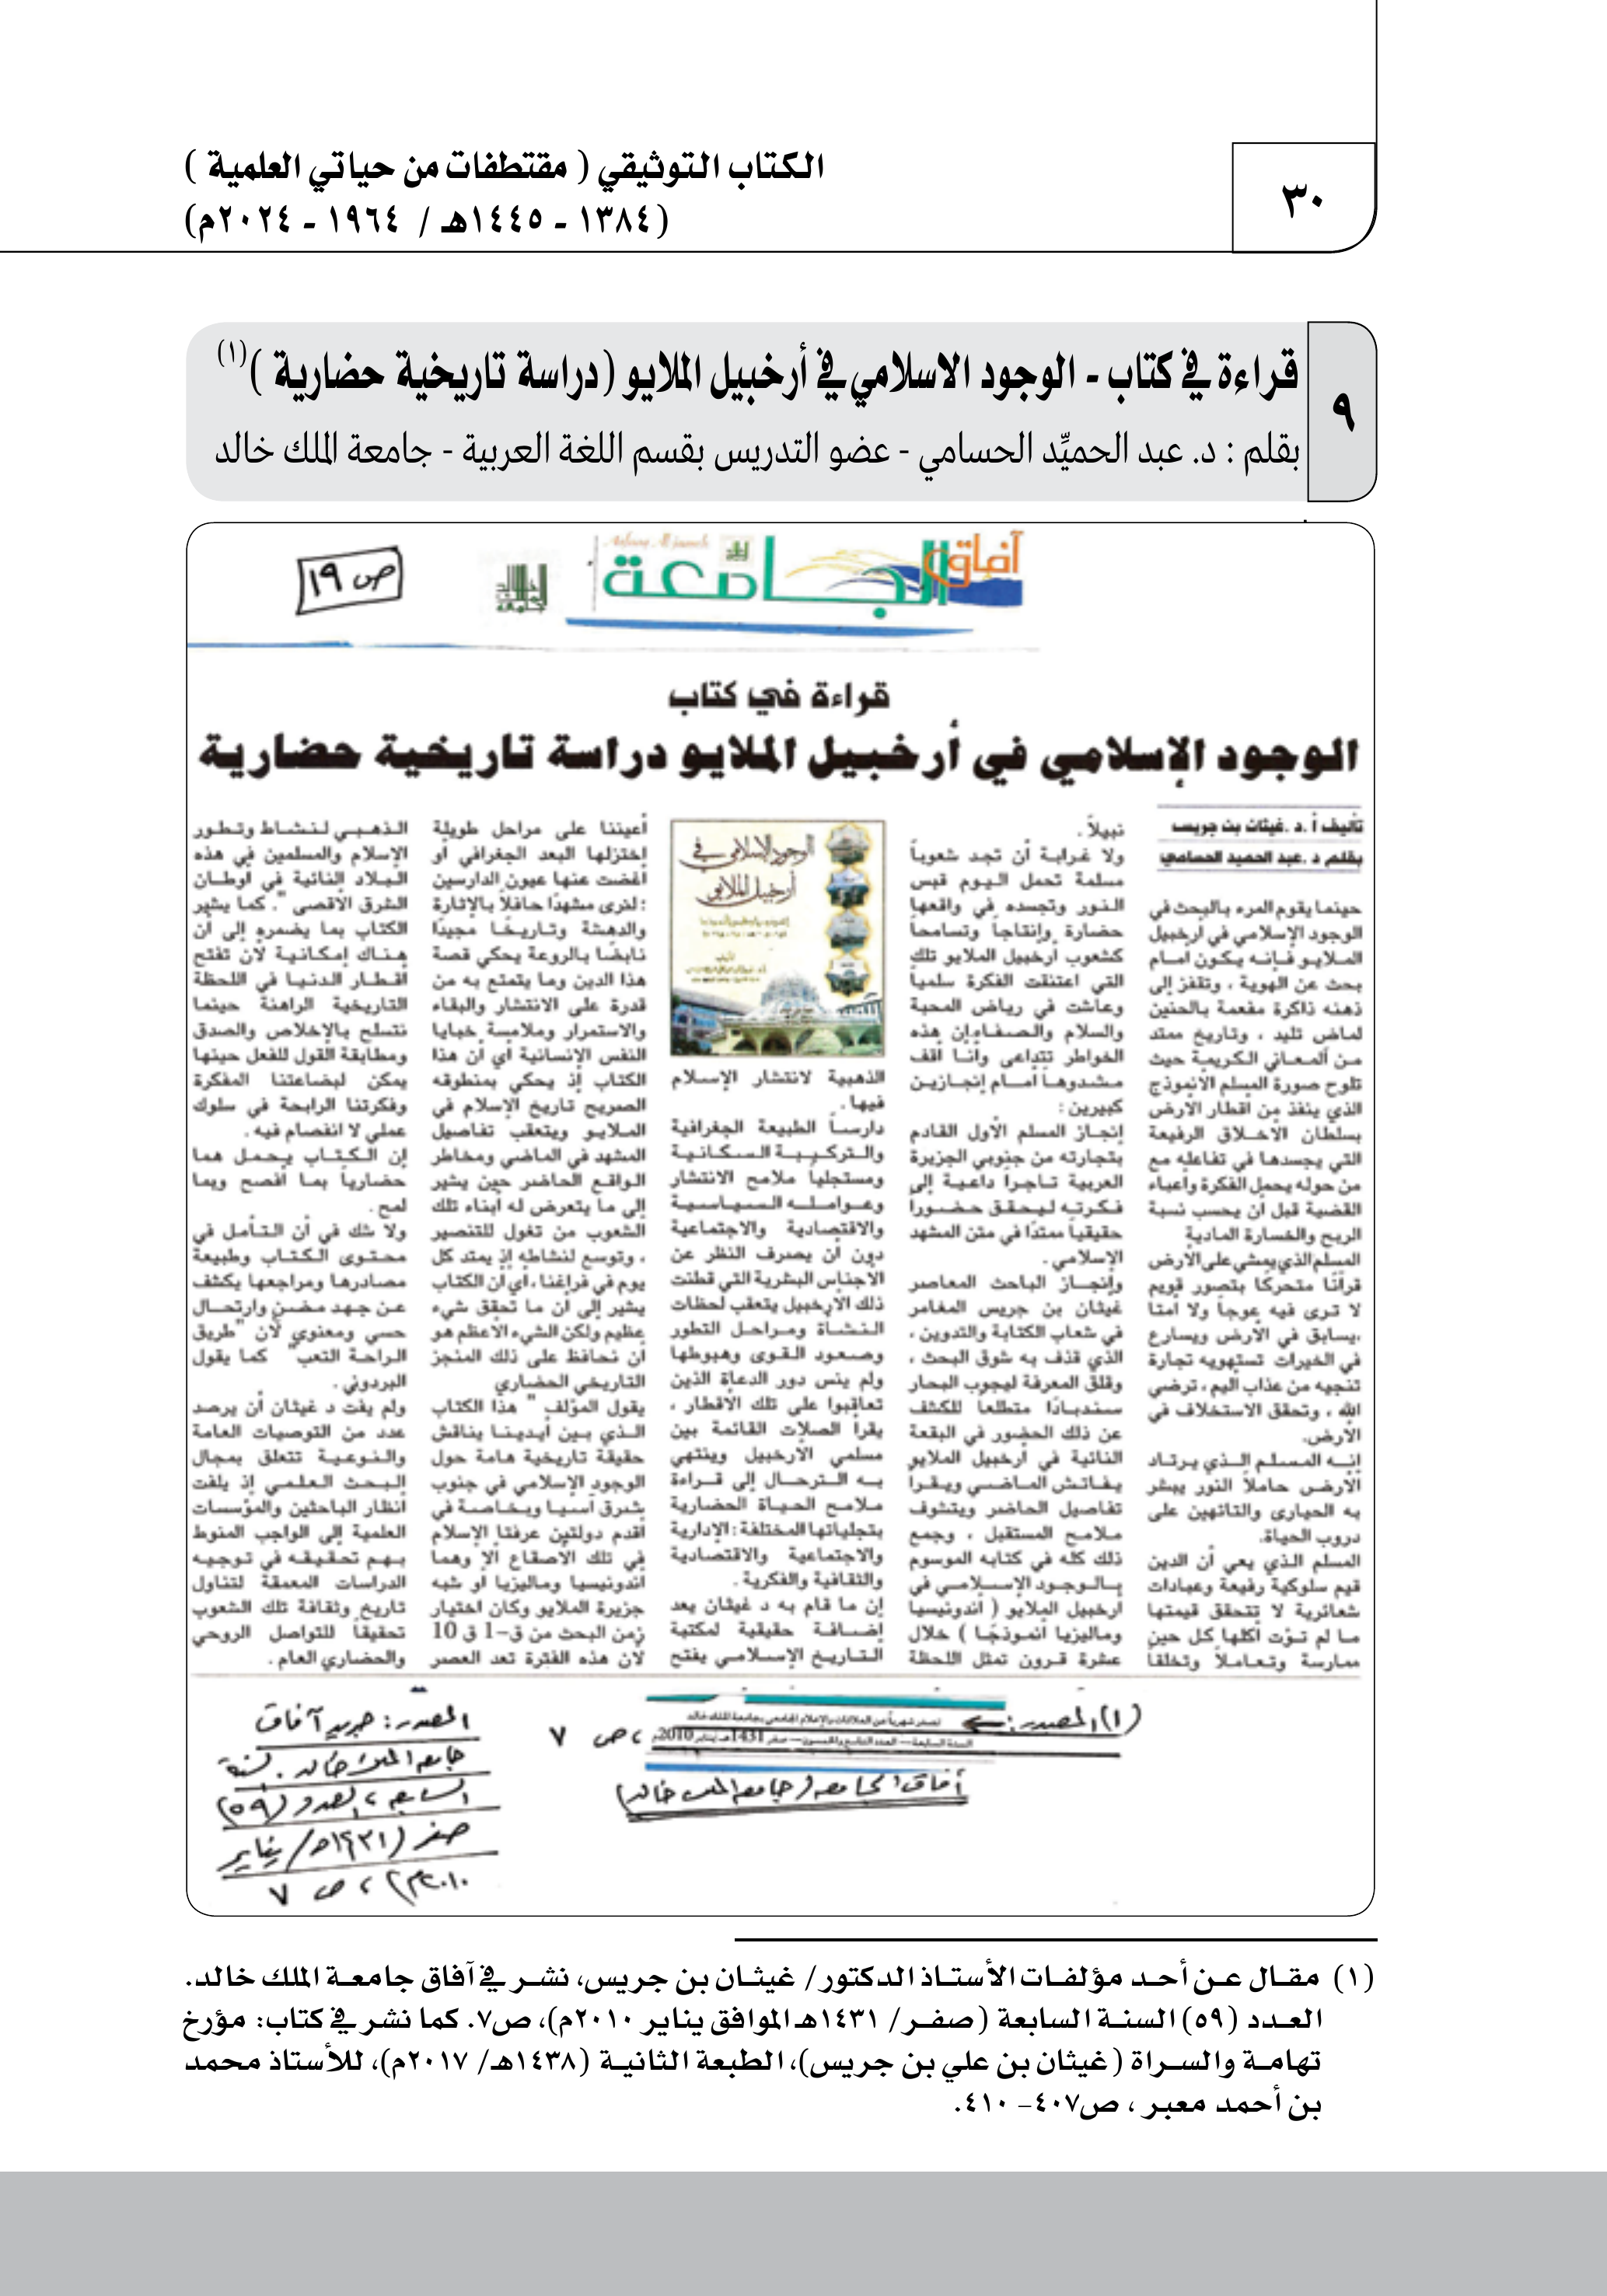 ٣٠
الكتاب التوثيقي ( مقتطفات من حياتي العلمية )
(١٣٨٤ - ١٤٤٥هـ / ١٩٦٤ - ٢٠٢٤م)
٩
قراءة في كتاب - الوجود الاسلامي في أرخبيل الملايو (دراسة تاريخية حضارية )(١)
بقلم : د. عبد الحميِّد الحسامي - عضو التدريس بقسم اللغة العربية - جامعة الملك خالد
آفاق الجامعة
ص ١٩
قراءة في كتاب
الوجود الإسلامي في أرخبيل الملايو دراسة تاريخية حضارية
تأليف أ.د.غيثان بن جريس
بقلم د .عبد الحميد الحسامي
حينما يقوم المرء بالبحث في
الوجود الإسلامي في أرخبيل
الملايو فإنه يكون أمام
بحث عن الهوية ، وتقفز إلى
ذهنه ذاكرة مفعمة بالحنين
لماض تليد ، وتاريخ ممتد
من المعاني الكريمة حيث
تلوح صورة المسلم الأنموذج
الذي ينفذ من أقطار الأرض
بسلطان الأخلاق الرفيعة
التي يجسدها في تفاعله مع
من حوله يحمل الفكرة وأعباء
القضية قبل أن يحسب نسبة
الربح والخسارة المادية
المسلم الذي يمشي على الأرض
قرآنًا متحركًا بتصور قويم
لا ترى فيه عوجاً ولا أمتا
،يسابق في الأرض ويسارع
في الخيرات تستهويه تجارة
تنجيه من عذاب اليم ، ترضي
الله ، وتحقق الاستخلاف في
الأرض.
إنه المسلم الذي يرتاد
الأرض حاملاً النور يبشر
به الحيارى والتائهين على
دروب الحياة.
المسلم الذي يعي أن الدين
قيم سلوكية رفيعة وعبادات
شعائرية لا تتحقق قيمتها
ما لم تؤت أكلها كل حين
ممارسة وتعاملاً وتخلقا
نبيلاً .
ولا غرابة أن تجد شعوباً
مسلمة تحمل اليوم قبس
النور وتجسده في واقعها
حضارة وإنتاجاً وتسامحاً
كشعوب أرخبيل الملايو تلك
التي اعتنقت الفكرة سلمياً
وعاشت في رياض المحبة
والسلام والصفاء.إن هذه
الخواطر تتداعى وأنا أقف
مشدوهاً أمام إنجازين
كبيرين :
إنجاز المسلم الأول القادم
بتجارته من جنوبي الجزيرة
العربية تاجرا داعية إلى
فكرته ليحقق حضوراً
حقيقياً ممتدًا في متن المشهد
الإسلامي .
وإنجاز الباحث المعاصر
غيثان بن جريس المغامر
في شعاب الكتابة والتدوين ،
الذي قذف به شوق البحث ،
وقلق المعرفة ليجوب البحار
سندبادًا متطلعا للكشف
عن ذلك الحضور في البقعة
النائية في أرخبيل الملايو
يفاتش الماضي ويقرأ
تفاصيل الحاضر ويتشوف
ملامح المستقبل ، وجمع
ذلك كله في كتابه الموسوم
بالوجود الإسلامي في
أرخبيل الملايو ( أندونيسيا
وماليزيا أنموذجًا ) خلال
عشرة قرون تمثل اللحظة
الوجود الإسلامي في
أرخبيل الملايو
الذهبية لانتشار الإسلام
فيها .
دارساً الطبيعة الجغرافية
والتركيبة السكانية
ومستجلياً ملامح الانتشار
وعوامله السياسية
والاقتصادية والاجتماعية
دون أن يصرف النظر عن
الأجناس البشرية التي قطنت
ذلك الأرخبيل يتعقب لحظات
النشأة ومراحل التطور
وصعود القوى وهبوطها
ولم ينس دور الدعاة الذين
تعاقبوا على تلك الأقطار ،
يقرأ الصلات القائمة بين
مسلمي الأرخبيل وينتهي
به الترحال إلى قراءة
ملامح الحياة الحضارية
بتجلياتها المختلفة : الإدارية
والاجتماعية والاقتصادية
والثقافية والفكرية .
إن ما قام به د غيثان يعد
إضافة حقيقية لمكتبة
التاريخ الإسلامي يفتح
أعيننا على مراحل طويلة
اختزلها البعد الجغرافي أو
أغضت عنها عيون الدارسين
؛ لنرى مشهدًا حافلاً بالإثارة
والدهشة وتاريخًا مجيدًا
نابضًا بالروعة يحكي قصة
هذا الدين وما يتمتع به من
قدرة على الانتشار والبقاء
والاستمرار وملامسة خبايا
النفس الإنسانية أي أن هذا
الكتاب إذ يحكي بمنطوقه
الصريح تاريخ الإسلام في
الملايو ويتعقب تفاصيل
المشهد في الماضي ومخاطر
الواقع الحاضر حين يشير
إلى ما يتعرض له أبناء تلك
الشعوب من تغول للتنصير
، وتوسع لنشاطه إذ يمتد كل
يوم في فراغنا ، أي أن الكتاب
يشير إلى أن ما تحقق شيء
عظيم ولكن الشيء الأعظم هو
أن نحافظ على ذلك المنجز
التاريخي الحضاري
يقول المؤلف " هذا الكتاب
الذي بين أيدينا يناقش
حقيقة تاريخية هامة حول
الوجود الإسلامي في جنوب
شرق آسيا وبخاصة في
أقدم دولتين عرفتا الإسلام
في تلك الأصقاع ألا وهما
أندونيسيا وماليزيا أو شبه
جزيرة الملايو وكان اختيار
زمن البحث من ق-1 ق 10
لأن هذه الفترة تعد العصر
الذهبي لنشاط وتطور
الإسلام والمسلمين في هذه
البلاد النائية في أوطان
الشرق الأقصى " . كما يشير
الكتاب بما يضمره إلى أن
هناك إمكانية لأن تفتح
أقطار الدنيا في اللحظة
التاريخية الراهنة حينما
نتسلح بالإخلاص والصدق
ومطابقة القول للفعل حينها
يمكن لبضاعتنا المفكرة
وفكرتنا الرابحة في سلوك
عملي لا انفصام فيه .
إن الكتاب يحمل هما
حضارياً بما أفصح وبما
لمح .
ولا شك في أن التأمل في
محتوى الكتاب وطبيعة
مصادرها ومراجعها يكشف
عن جهد مضنٍ وارتحال
حسي ومعنوي لأن "طريق
الراحة التعب" كما يقول
البردوني .
ولم يفت د غيثان أن يرصد
عدد من التوصيات العامة
والنوعية تتعلق بمجال
البحث العلمي إذ يلفت
أنظار الباحثين والمؤسسات
العلمية إلى الواجب المنوط
بهم تحقيقه في توجيه
الدراسات المعمقة لتناول
تاريخ وثقافة تلك الشعوب
تحقيقاً للتواصل الروحي
والحضاري العام .
(١) المصدر:
تصدر شهرياً عن العلاقات والإعلام الجامعي بجامعة الملك خالد
السنة السابعة – العدد التاسع والخمسون – صفر 1431هـ يناير 2010م ، ص ٧
آفاق الجامعة (جامعة الملك خالد)
المصدر: جريدة آفاق
جامعة الملك خالد . السنة
السابعة ، العدد (٥٩)
صفر (١٤٣١هـ/ يناير
٢٠١٠م) ، ص ٧
(١) مقال عن أحد مؤلفات الأستاذ الدكتور/ غيثان بن جريس، نشر في آفاق جامعة الملك خالد.
العدد (٥٩) السنة السابعة (صفر/ ١٤٣١هـ الموافق يناير ٢٠١٠م)، ص٧. كما نشر في كتاب: مؤرخ
تهامة والسراة (غيثان بن علي بن جريس)، الطبعة الثانية (١٤٣٨هـ/ ٢٠١٧م)، للأستاذ محمد
بن أحمد معبر ، ص٤٠٧– ٤١٠.